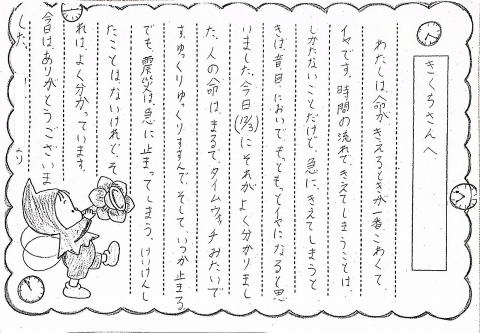 きくちさんへ
わたしは、命がきえるときが一番こわくて、
イヤです。時間の流れで、きえてしまうことは、
しかたないことだけど、急に、きえてしまうと
きは、昔においで、もっともっとイヤになると思
いました。今日(12/3)にそれがよく分かりまし
た。人の命は、まるで、タイムウォッチみたいで
す。ゆっくりゆっくりすすんで、そして、いつか止まる
でも、震災は、急に止まってしまう。けいけんし
たことはないけれど、そ
れは、よく分かっています。
今日は、ありがとうございま
した。
より